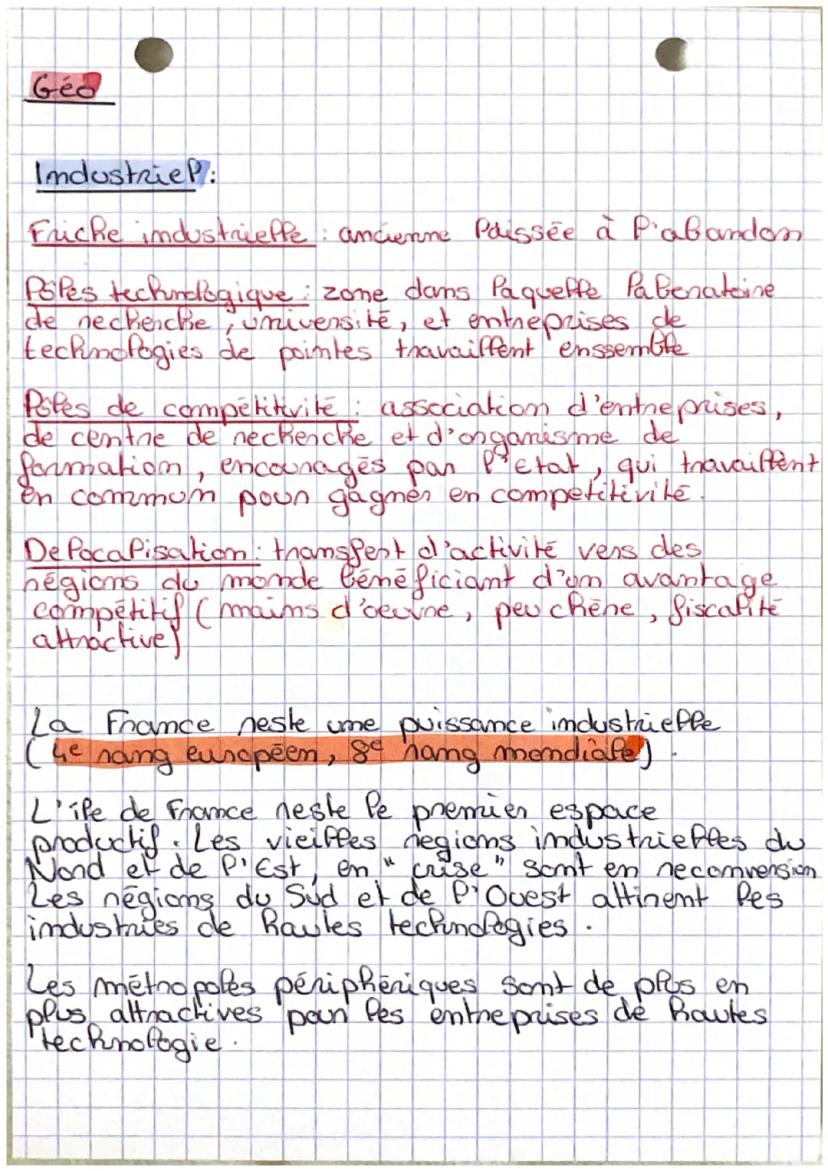 Géo
Industriel :
Friche industrielle : ancienne laissée à l'abandon
Pôles technologique : zone dans laquelle laberatoire
de recherche, université, et entreprises de
technologies de pointes travaillent enssemble
Pôles de compétitivité : association d'entreprises,
de centre de recherche et d'organisme de
formation, encouragés par l'état, qui travaillent
en commun pour gagner en compétitivité.
Delocalisation : transfert d'activité vers des
régions du monde bénéficiant d'un avantage
compétitif (mains d'oeuvre, peu chère, fiscalité
attractive)
La France reste une puissance industrielle
(4e rang européen, 8e rang mondiale).
L'île de France reste le premier espace
productif. Les vieilles regions industrielles du
Nord et de l'Est, en "crise" sont en reconversion
Les régions du Sud et de l'Ouest attirent les
industries de hautes technologies.
Les métropoles périphériques sont de plus en
plus attractives pour les entreprises de hautes
technologie.